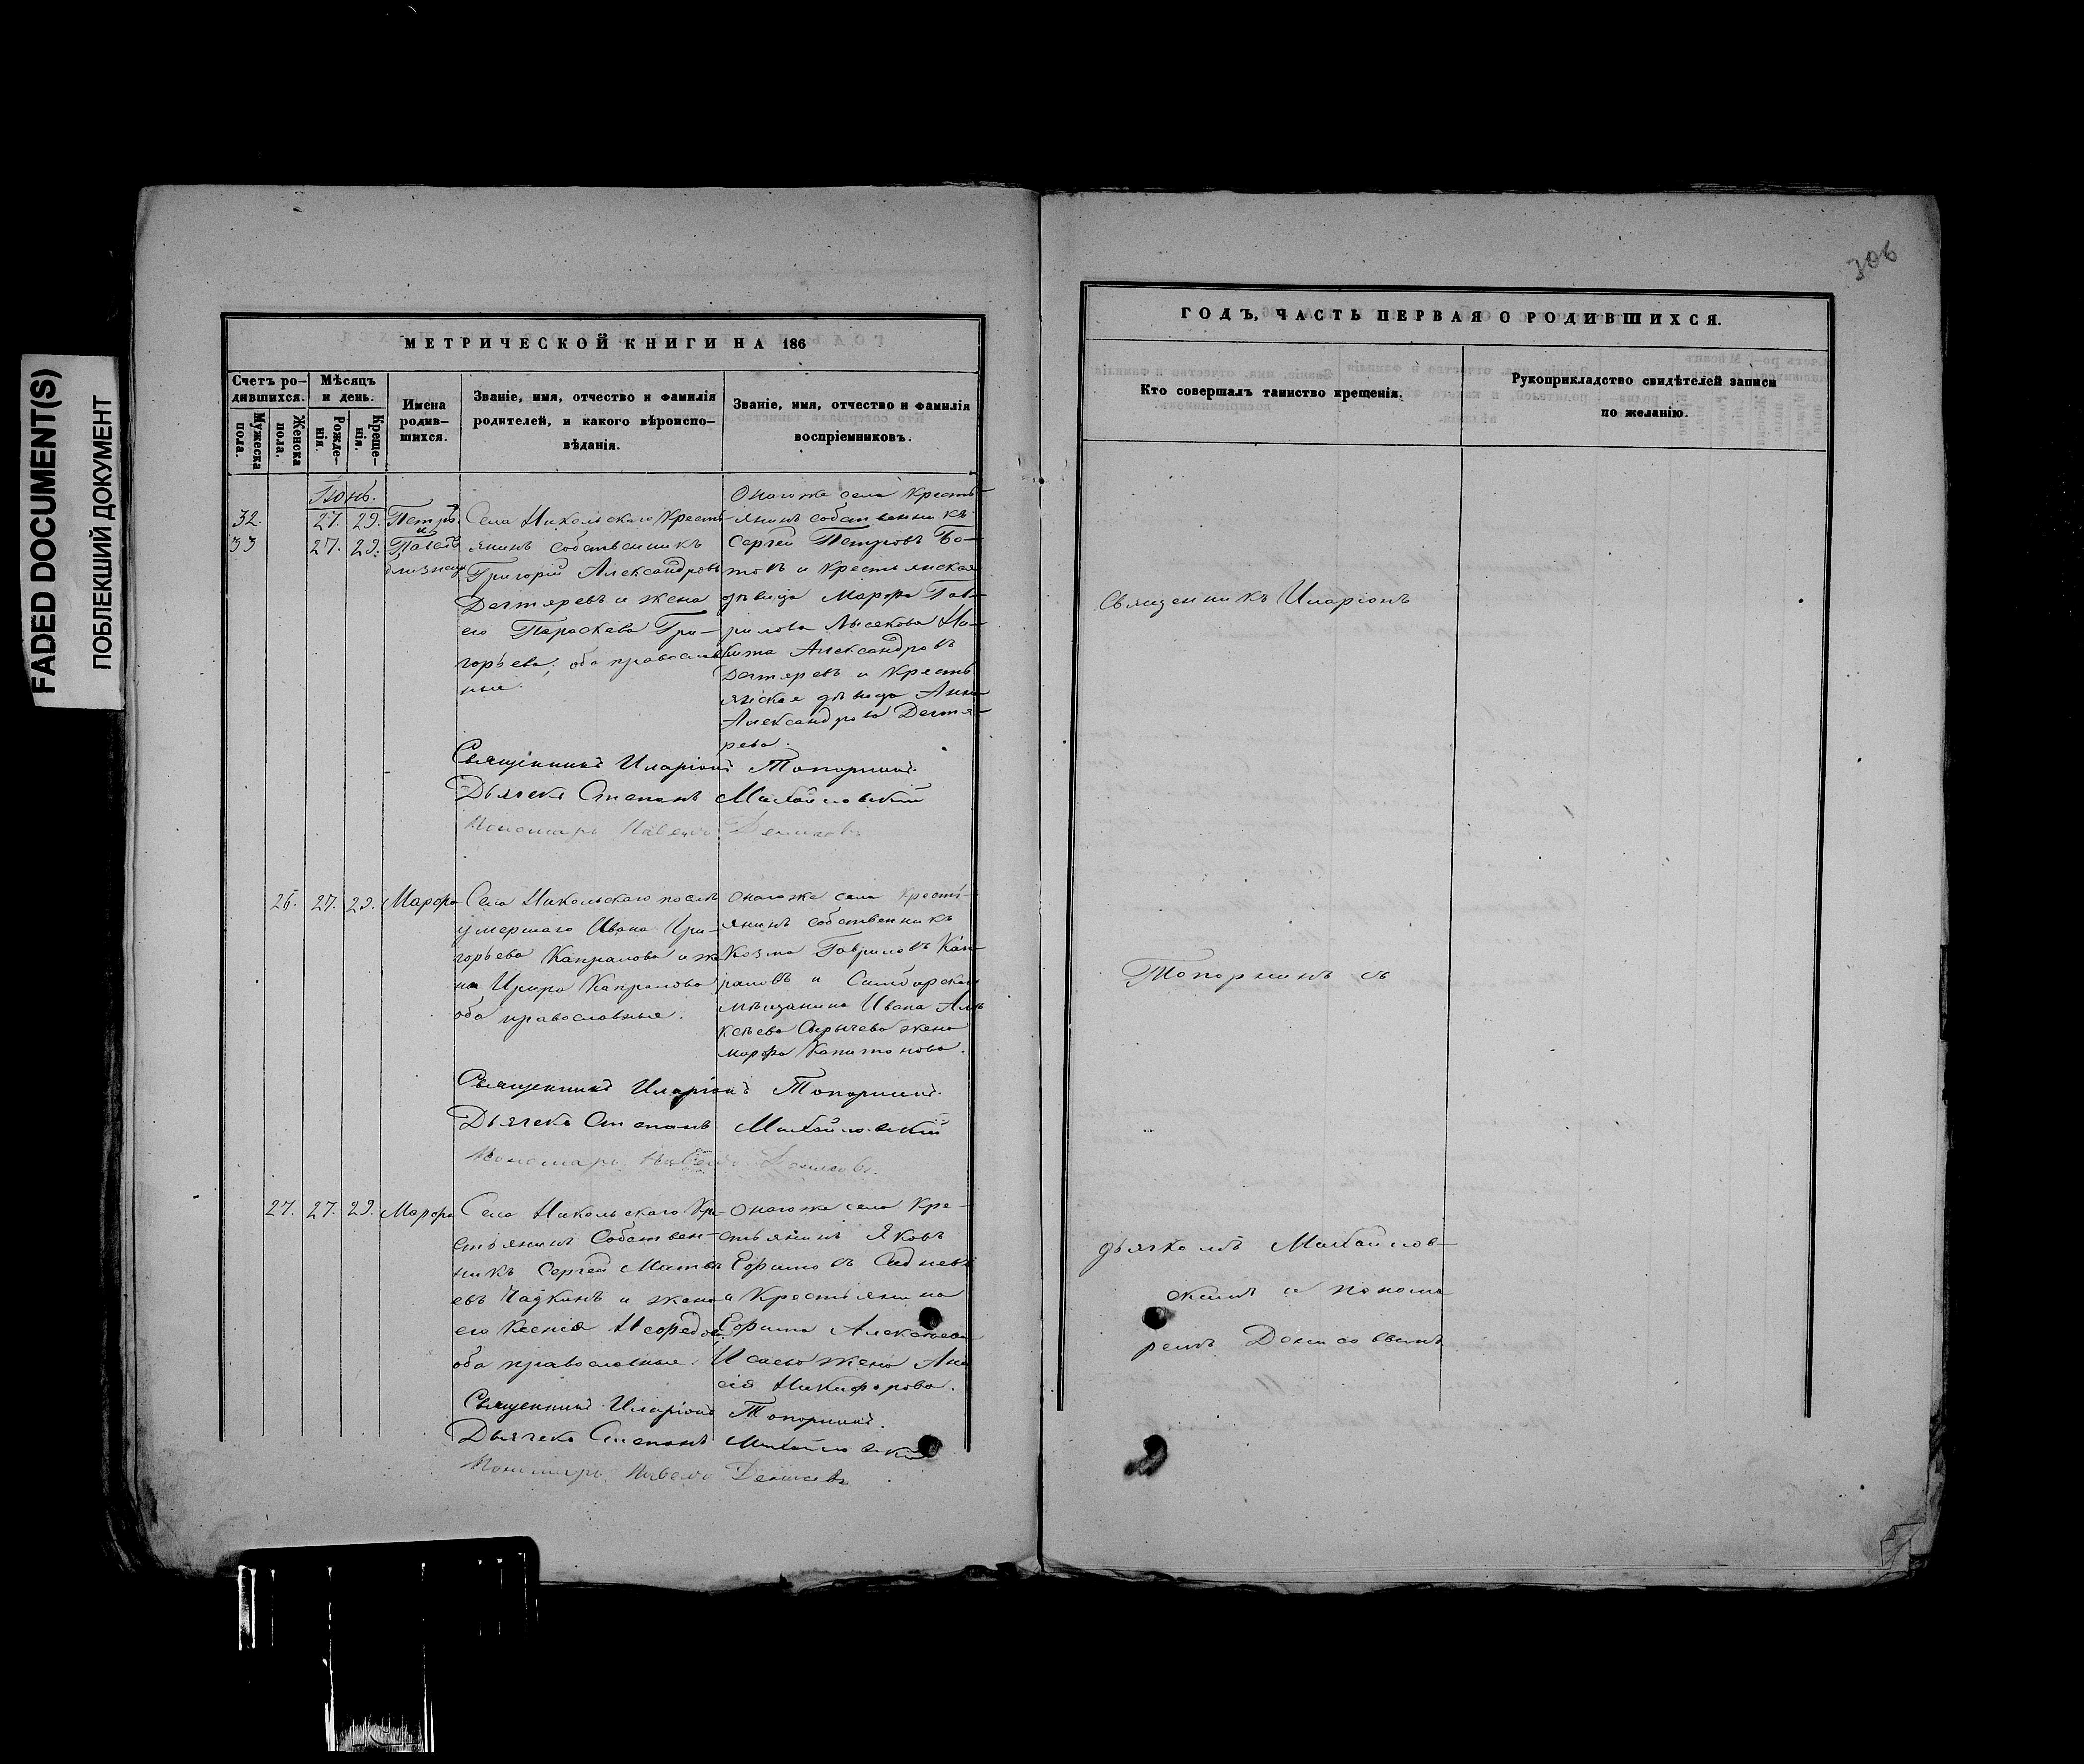 FADED DOCUMENT(S)
ПОБЛЕКШИЙ ДОКУМЕНТ
306
МЕТРИЧЕСКОЙ КНИГИ НА 186
Счетъ ро-
дившихся.
Мѣсяцъ
и день.
Мужеска
пола.
Женска
пола.
Рожде-
нія.
Креще-
нія.
Имена
родив-
шихся.
Званіе, имя, отчество и фамилія
родителей, и какого вѣроиспо-
вѣданія.
Званіе, имя, отчество и фамилія
воспріемниковъ.
Іюнь.
32. 27. 29. Петръ
и
33 27. 29. Павелъ
близнецы
Села Никольскаго Кресть-
янинъ собственникъ
Григорій Александровъ
Дегтяревъ и жена
его Параскева Гри-
горьева, оба православ
ные.
Онагоже села Кресть-
янинъ собственникъ
Сергей Петровъ Бо-
товъ и Крестьянская
дѣвица Марфа Гав-
рилова Лысякова Ни-
кита Александровъ
Дегтяревъ и Кресть
янская дѣвица Анна
Александрова Дегтя-
рева.
Священникъ Иларіонъ Топорнинъ.
Дьячекъ Степанъ Михайловскій
Пономарь Павелъ Денисовъ
26. 27. 29. Марфа
Села Никольскаго послѣ
умершаго Ивана Гри-
горьева Капралова и же
на Ирира Капралова
оба православные.
Онагоже села Кресть-
янинъ собственникъ
Козма Гавриловъ Кап-
раловъ и Симбирскаго
мѣщанина Ивана Але
ксѣева Сырычева жена
Марфа Капитонова.
Священникъ Иларіонъ Топорнинъ.
Дьячекъ Степанъ Михайловскій
Пономарь Павелъ Денисовъ.
27. 27. 29. Марфа
Села Никольскаго Кре-
стьянинъ Собствен-
никъ Сергей Матвѣ
евъ Чадкинъ и жена
его Ксенія Нефедова
оба православные.
Онагоже села Кре-
стьянинъ Яковъ
Ефимовъ Садневъ
и Крестьянина
Ефима Алексѣева
Исаева жена Ана
сія Никифорова.
Священникъ Иларіонъ Топорнинъ.
Дьячекъ Степанъ Михайловскій
Пономарь Павелъ Денисовъ
ГОДЪ, ЧАСТЬ ПЕРВАЯ О РОДИВШИХСЯ.
Кто совершалъ таинство крещенія.
Рукоприкладство свидѣтелей записи
по желанію.
Священникъ Иларіонъ
Топорнинъ съ
дьячкомъ Михайлов-
скимъ и понома
ремъ Денисовымъ